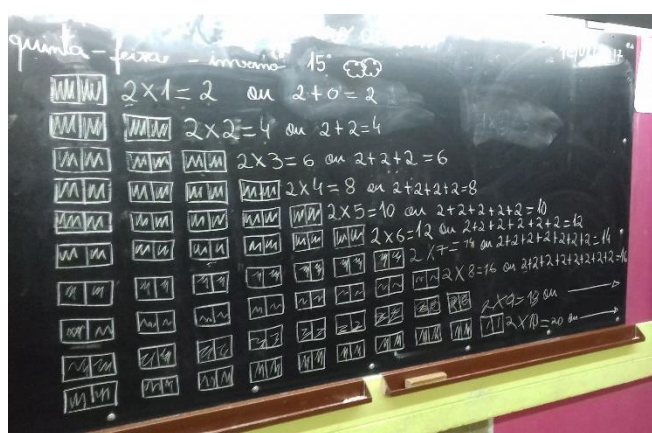 quinta-feira - inverno 15°
2x1=2 ou 2+0=2
2x2=4 ou 2+2=4
2x3=6 ou 2+2+2=6
2x4=8 ou 2+2+2+2=8
2x5=10 ou 2+2+2+2+2=10
2x6=12 ou 2+2+2+2+2+2=12
2x7=14 ou 2+2+2+2+2+2+2=14
2x8=16 ou 2+2+2+2+2+2+2+2=16
2x9=18 ou
2x10=20 ou